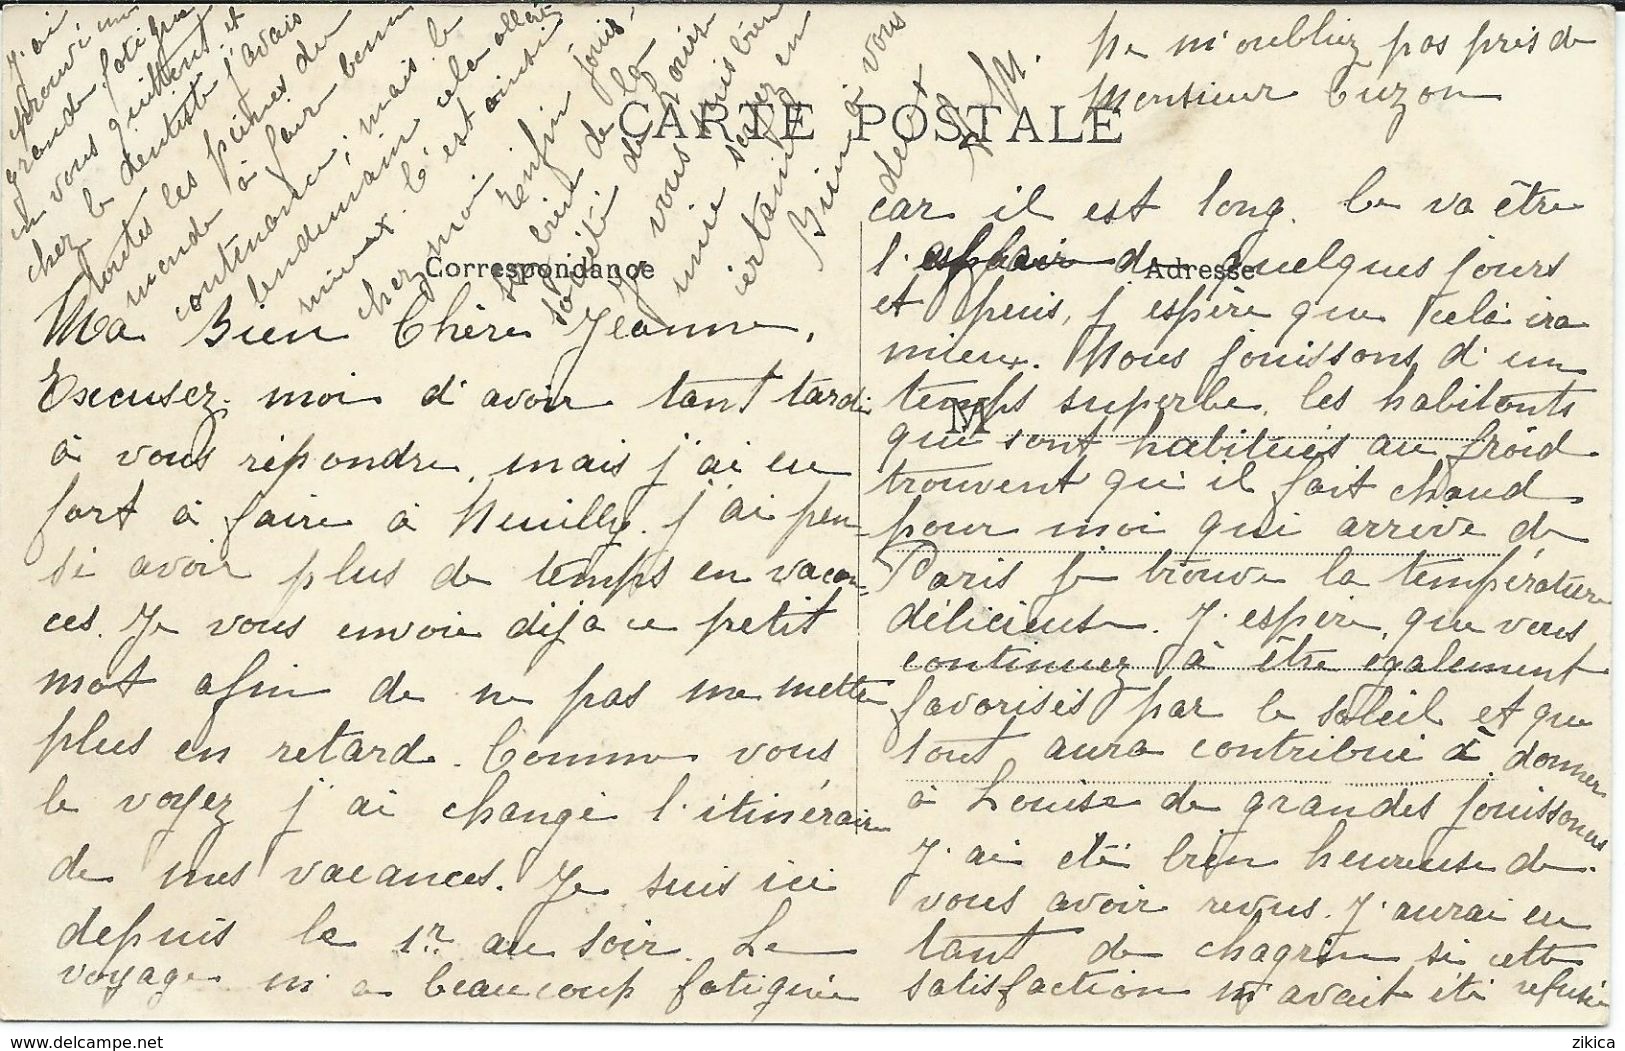 CARTE POSTALE
Correspondance
Adresse
M
Ma Bien Chère Jeanne,
Excusez moi d'avoir tant tardé
à vous répondre, mais j'ai eu
fort à faire à Neuilly. j'ai pen-
sé avoir plus de temps en vacan-
ces. Je vous envoie déjà ce petit
mot afin de ne pas me mettre
plus en retard. Comme vous
le voyez j'ai changé l'itinéraire
de mes vacances. Je suis ici
depuis le 1er au soir. Le
voyage m'a beaucoup fatiguée
car il est long. Ce va être
l' de quelques jours
et puis, j'espère que cela ira
mieux. Nous jouissons d'un
temps superbe. les habitants
qui sont habitués au froid
trouvent qu'il fait chaud
pour moi qui arrive de
Paris je trouve la température
délicieuse. J'espère que vous
continuez à être également
favorisés par le soleil et que
tout aura contribué à donner
à Louise de grandes jouissances
J'ai été bien heureuse de
vous avoir revus. J'aurai eu
tant de chagrin si cette
satisfaction m'avait été refusée
J'ai
éprouvé une
grande fatigue
en vous quittant et
chez le dentiste j'avais
toutes les peines du
monde à faire bonne
contenance; mais le
lendemain cela allait
mieux. C'est ainsi
chez moi. Enfin jouis-
sez bien de la
société de Louise
Je vous suis bien
unie soyez en
certaine
Bien à vous
deux
M.
Ne m'oubliez pas près de
Monsieur Cuzon
zikica
delcampe.net